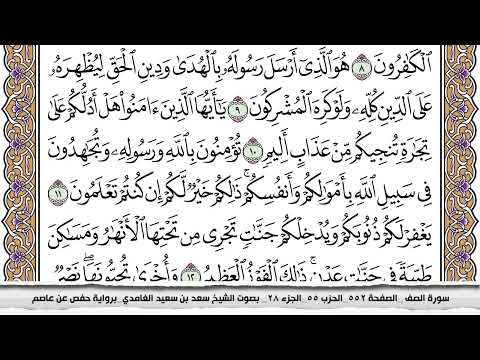 ٱلۡكَٰفِرُونَ ٨ هُوَ ٱلَّذِيٓ أَرۡسَلَ رَسُولَهُۥ بِٱلۡهُدَىٰ وَدِينِ ٱلۡحَقِّ لِيُظۡهِرَهُۥ
عَلَى ٱلدِّينِ كُلِّهِۦ وَلَوۡ كَرِهَ ٱلۡمُشۡرِكُونَ ٩ يَٰٓأَيُّهَا ٱلَّذِينَ ءَامَنُواْ هَلۡ أَدُلُّكُمۡ عَلَىٰ
تِجَٰرَةٖ تُنجِيكُم مِّنۡ عَذَابٍ أَلِيمٖ ١٠ تُؤۡمِنُونَ بِٱللَّهِ وَرَسُولِهِۦ وَتُجَٰهِدُونَ
فِي سَبِيلِ ٱللَّهِ بِأَمۡوَٰلِكُمۡ وَأَنفُسِكُمۡۚ ذَٰلِكُمۡ خَيۡرٞ لَّكُمۡ إِن كُنتُمۡ تَعۡلَمُونَ ١١
يَغۡفِرۡ لَكُمۡ ذُنُوبَكُمۡ وَيُدۡخِلۡكُمۡ جَنَّٰتٖ تَجۡرِي مِن تَحۡتِهَا ٱلۡأَنۡهَٰرُ وَمَسَٰكِنَ
طَيِّبَةٗ فِي جَنَّٰتِ عَدۡنٖۚ ذَٰلِكَ ٱلۡفَوۡزُ ٱلۡعَظِيمُ ١٢ وَأُخۡرَىٰ تُحِبُّونَهَاۖ نَصۡرٞ
سورة الصف _الصفحة ٥٥٢_ الحزب ٥٥ _ الجزء ٢٨ _ بصوت الشيخ سعد بن سعيد الغامدي _برواية حفص عن عاصم